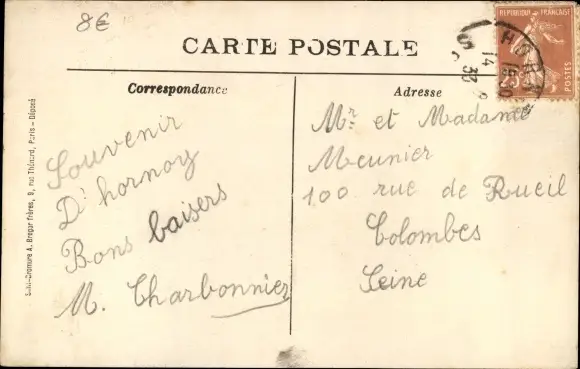 8€
REPUBLIQUE FRANCAISE
25
POSTES
CARTE POSTALE
Correspondance
Adresse
Souvenir
D'hornoy
Bons baisers
M. Charbonnier
Mr et Madame
Meunier
100 rue de Rueil
Colombes
Seine
A. Breger frères, 9, rue Thénard, Paris - Déposé